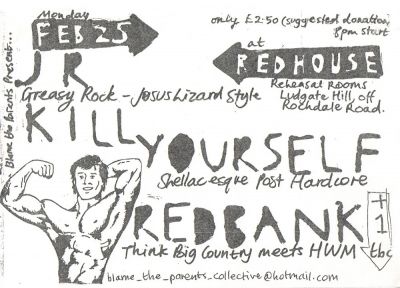 Blame the Parents Present...
Monday
FEB 25
only £2.50 (suggested donation)
8pm start
at
REDHOUSE
Rehearsal Rooms
Ludgate Hill, off
Rochdale Road.
JR
Greasy Rock - Jesus Lizard Style
KILL YOURSELF
Shellac esque Post Hardcore
REDBANK
Think Big Country meets HWM
+1
tbc
blame_the_parents_collective@hotmail.com